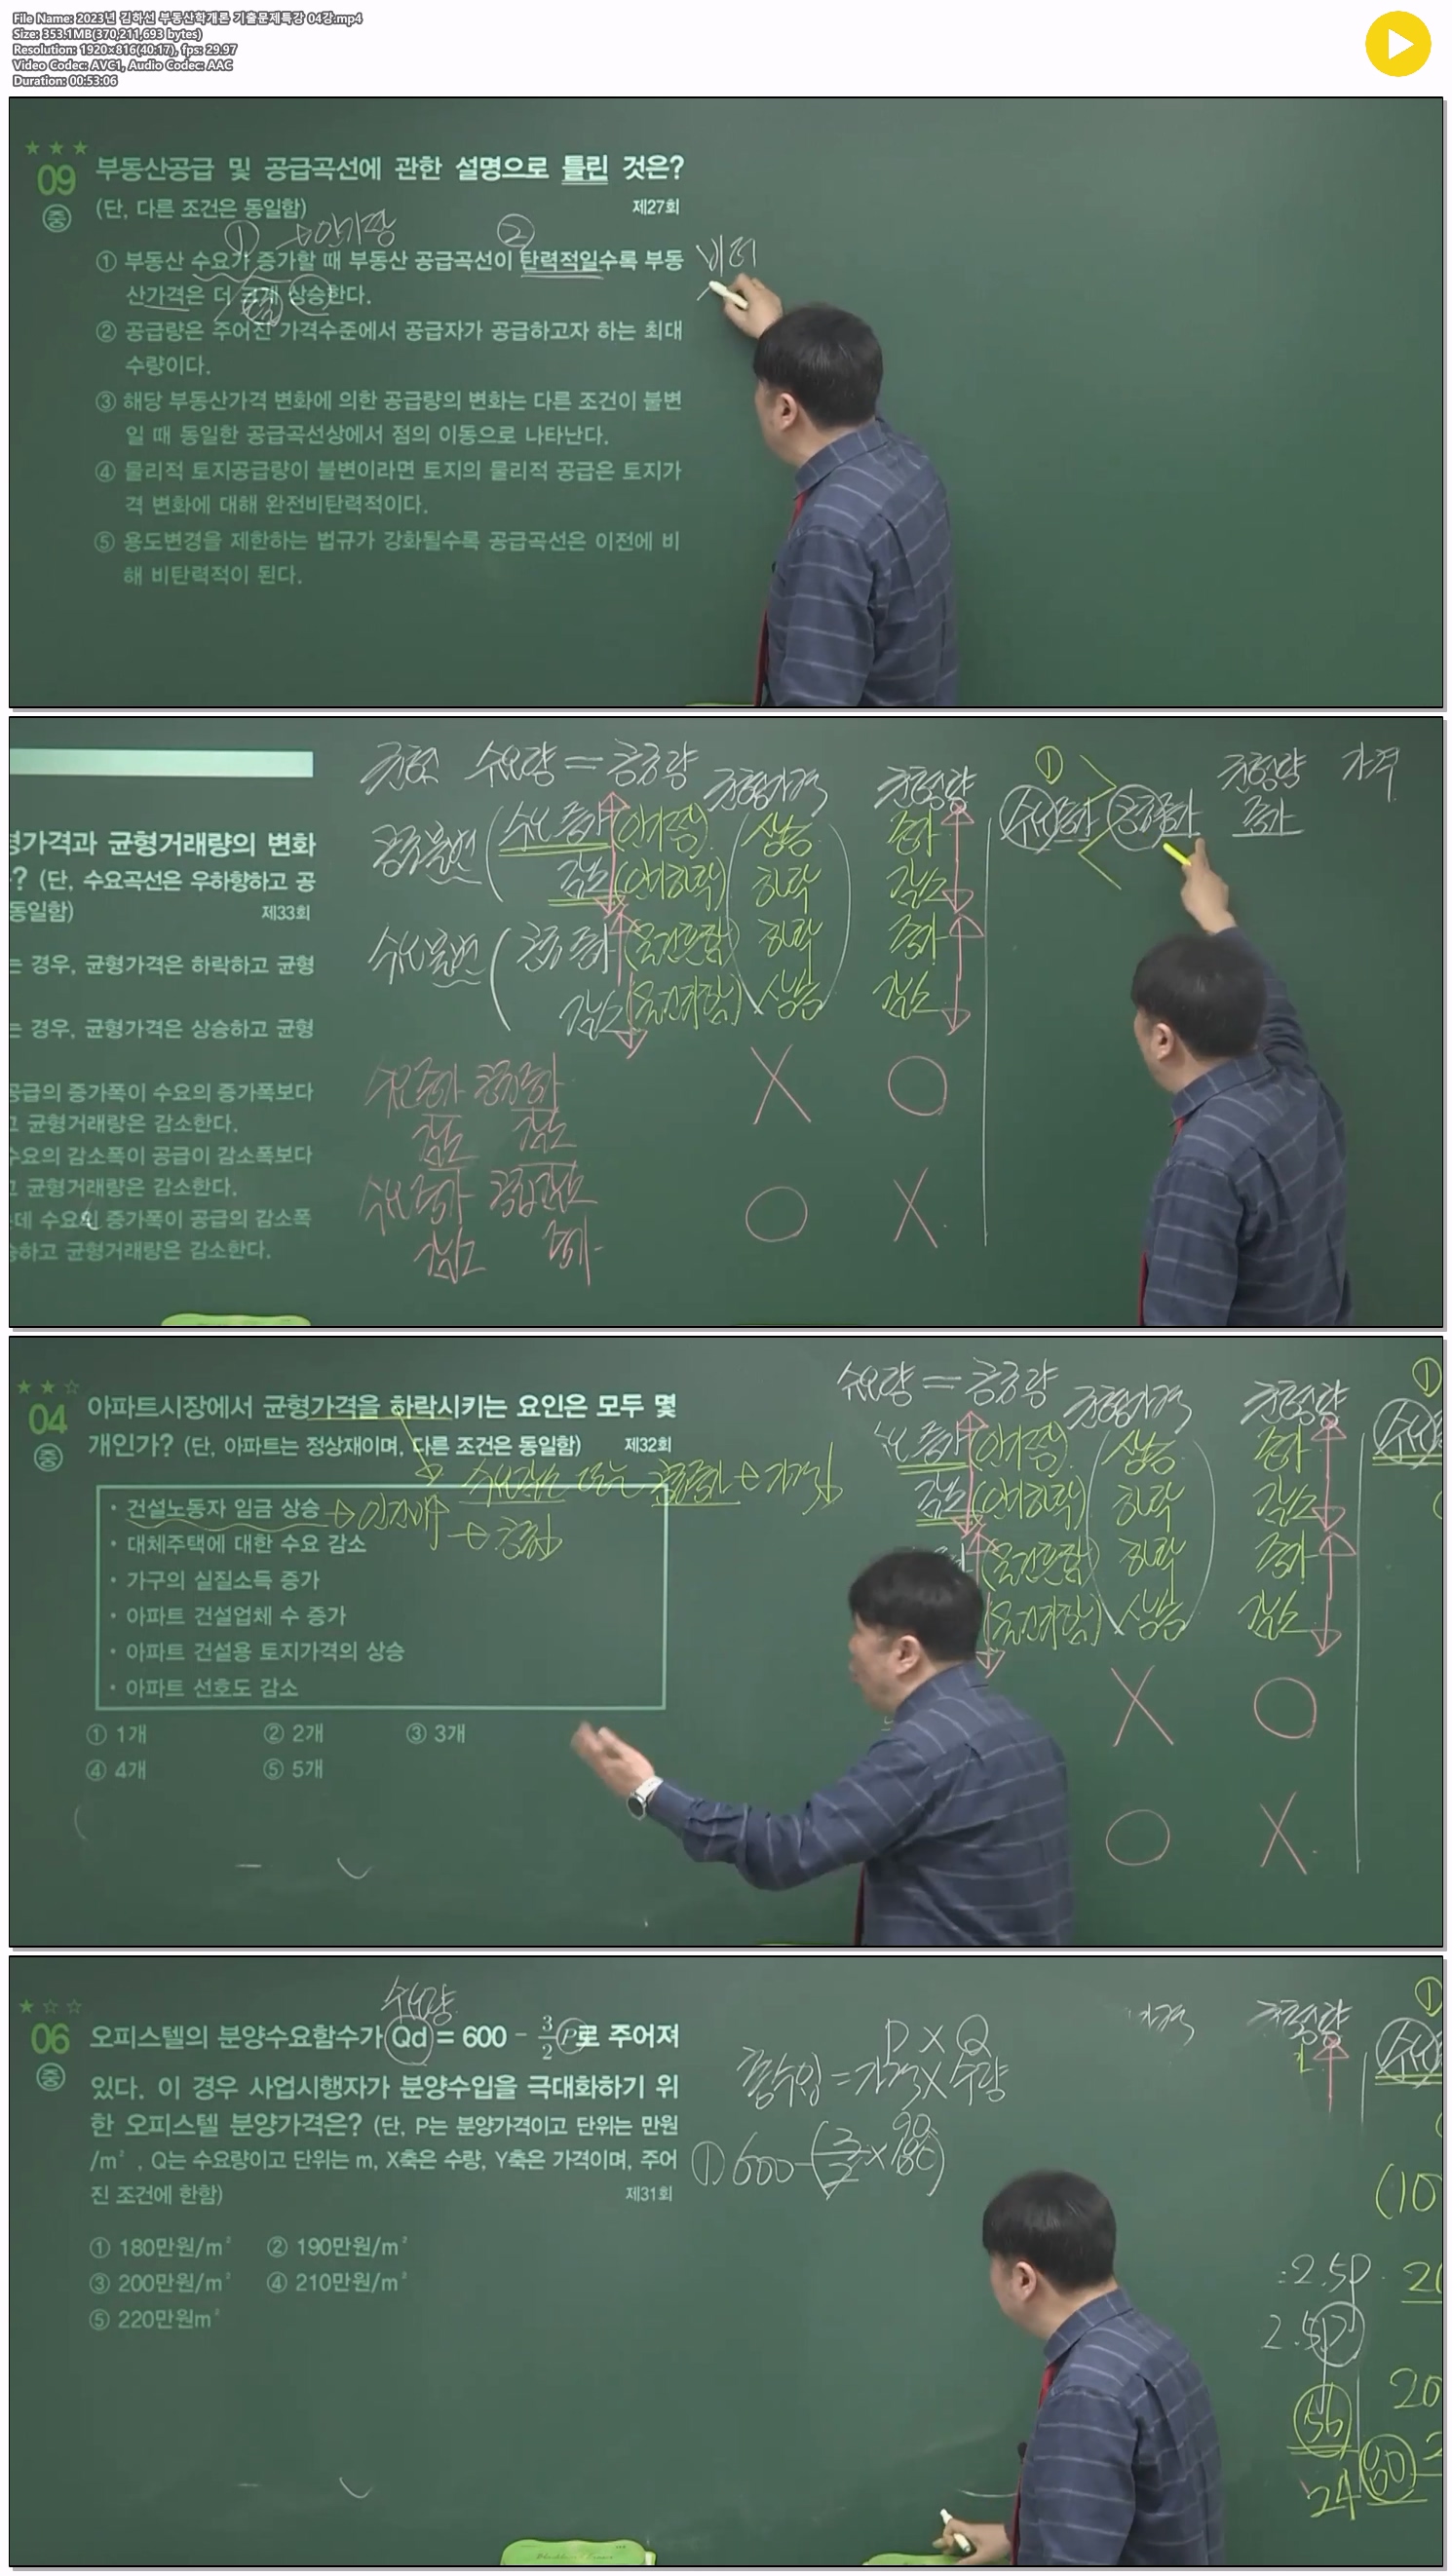 File Name: 2023년 김하선 부동산학개론 기출문제특강 04강.mp4
Size: 353.1MB(370,211,693 bytes)
Resolution: 1920×816(40:17), fps: 29.97
Video Codec: AVC1, Audio Codec: AAC
Duration: 00:53:06
★ ★ ★
09 부동산공급 및 공급곡선에 관한 설명으로 틀린 것은?
중 (단, 다른 조건은 동일함) 제27회
① ②
① 부동산 수요가 증가할 때 부동산 공급곡선이 탄력적일수록 부동
산가격은 더 크게 상승한다.
② 공급량은 주어진 가격수준에서 공급자가 공급하고자 하는 최대
수량이다.
③ 해당 부동산가격 변화에 의한 공급량의 변화는 다른 조건이 불변
일 때 동일한 공급곡선상에서 점의 이동으로 나타난다.
④ 물리적 토지공급량이 불변이라면 토지의 물리적 공급은 토지가
격 변화에 대해 완전비탄력적이다.
⑤ 용도변경을 제한하는 법규가 강화될수록 공급곡선은 이전에 비
해 비탄력적이 된다.
균형 수요량 = 공급량 균형가격 균형량 ① 균형량 가격
형가격과 균형거래량의 변화
? (단, 수요곡선은 우하향하고 공
동일함) 제33회
는 경우, 균형가격은 하락하고 균형
는 경우, 균형가격은 상승하고 균형
공급의 증가폭이 수요의 증가폭보다
고 균형거래량은 감소한다.
수요의 감소폭이 공급이 감소폭보다
고 균형거래량은 감소한다.
데 수요의 증가폭이 공급의 감소폭
승하고 균형거래량은 감소한다.
공급불변 수요 증가 상승 증가
감소 하락 감소
수요불변 공급 증가 하락 증가
감소 상승 감소
수요증가 공급증가 X O
감소 감소
수요증가 공급감소 O X
감소 증가
수요증가 공급증가 증가
★ ★ ☆
04 아파트시장에서 균형가격을 하락시키는 요인은 모두 몇
중 개인가? (단, 아파트는 정상재이며, 다른 조건은 동일함) 제32회
• 건설노동자 임금 상승
• 대체주택에 대한 수요 감소
• 가구의 실질소득 증가
• 아파트 건설업체 수 증가
• 아파트 건설용 토지가격의 상승
• 아파트 선호도 감소
① 1개 ② 2개 ③ 3개
④ 4개 ⑤ 5개
수요량 = 공급량 균형가격 균형량 ①
상승 증가
하락 감소
하락 증가
상승 감소
X O
O X
★ ☆ ☆
수요량
06 오피스텔의 분양수요함수가 Qd = 600 - 3/2 P로 주어져
중 있다. 이 경우 사업시행자가 분양수입을 극대화하기 위
한 오피스텔 분양가격은? (단, P는 분양가격이고 단위는 만원
/m², Q는 수요량이고 단위는 m, X축은 수량, Y축은 가격이며, 주어
진 조건에 한함) 제31회
① 180만원/m² ② 190만원/m²
③ 200만원/m² ④ 210만원/m²
⑤ 220만원m²
P X Q
총수입 = 가격 X 수량
90
① 600-(3/2×180)
균형량 ①
(10
2.5P 20
2.5P
56 20
24 80